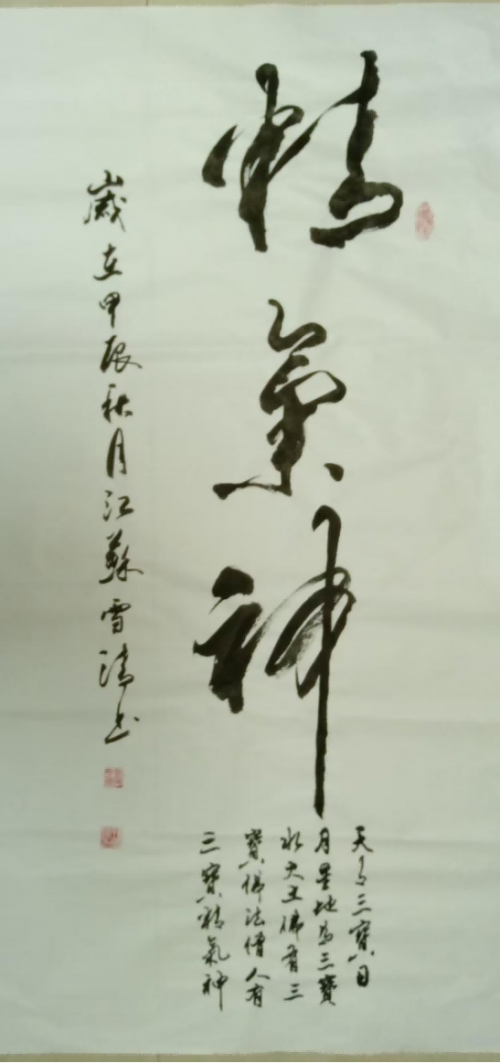 精氣神
天有三寶日
月星地有三寶
水火土佛有三
寶佛法僧人有
三寶精氣神
歲在甲辰秋月江蘇雪清书